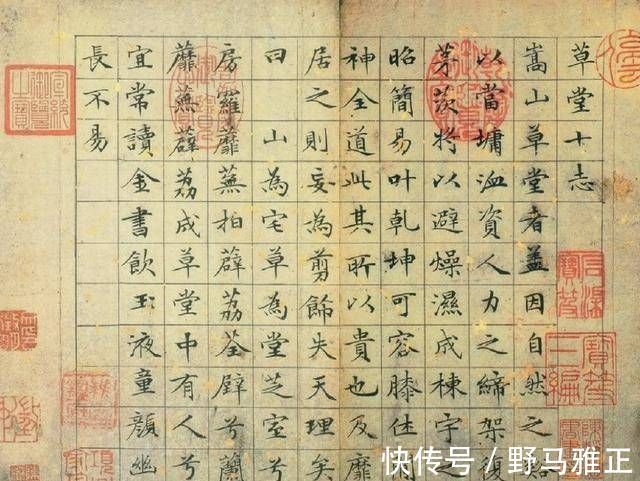 草堂十志
嵩山草堂者盖因自然之谿
以當墉洫資人力之締架復
茅茨将以避燥濕成棟宇之
昭簡易叶乾坤可容膝休
神全道此其所以貴也及靡
居之則妄為剪飾失天理矣
曰山為宅草為堂芝室兮
房羅蘼蕪拍薜荔荃壁兮蘭
蘼蕪薜荔成草堂中有人兮
宜常讀金書飲玉液童顏幽
長不易
石渠寶笈
寶笈三編
快传号 / 野马雅正